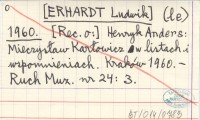 [ERHARDT Ludwik] (le)
1960. [Rec. o:] Henryk Anders:
Mieczysław Karłowicz w listach i
wspomnieniach. Kraków 1960. –
Ruch Muz. nr 24: 3.